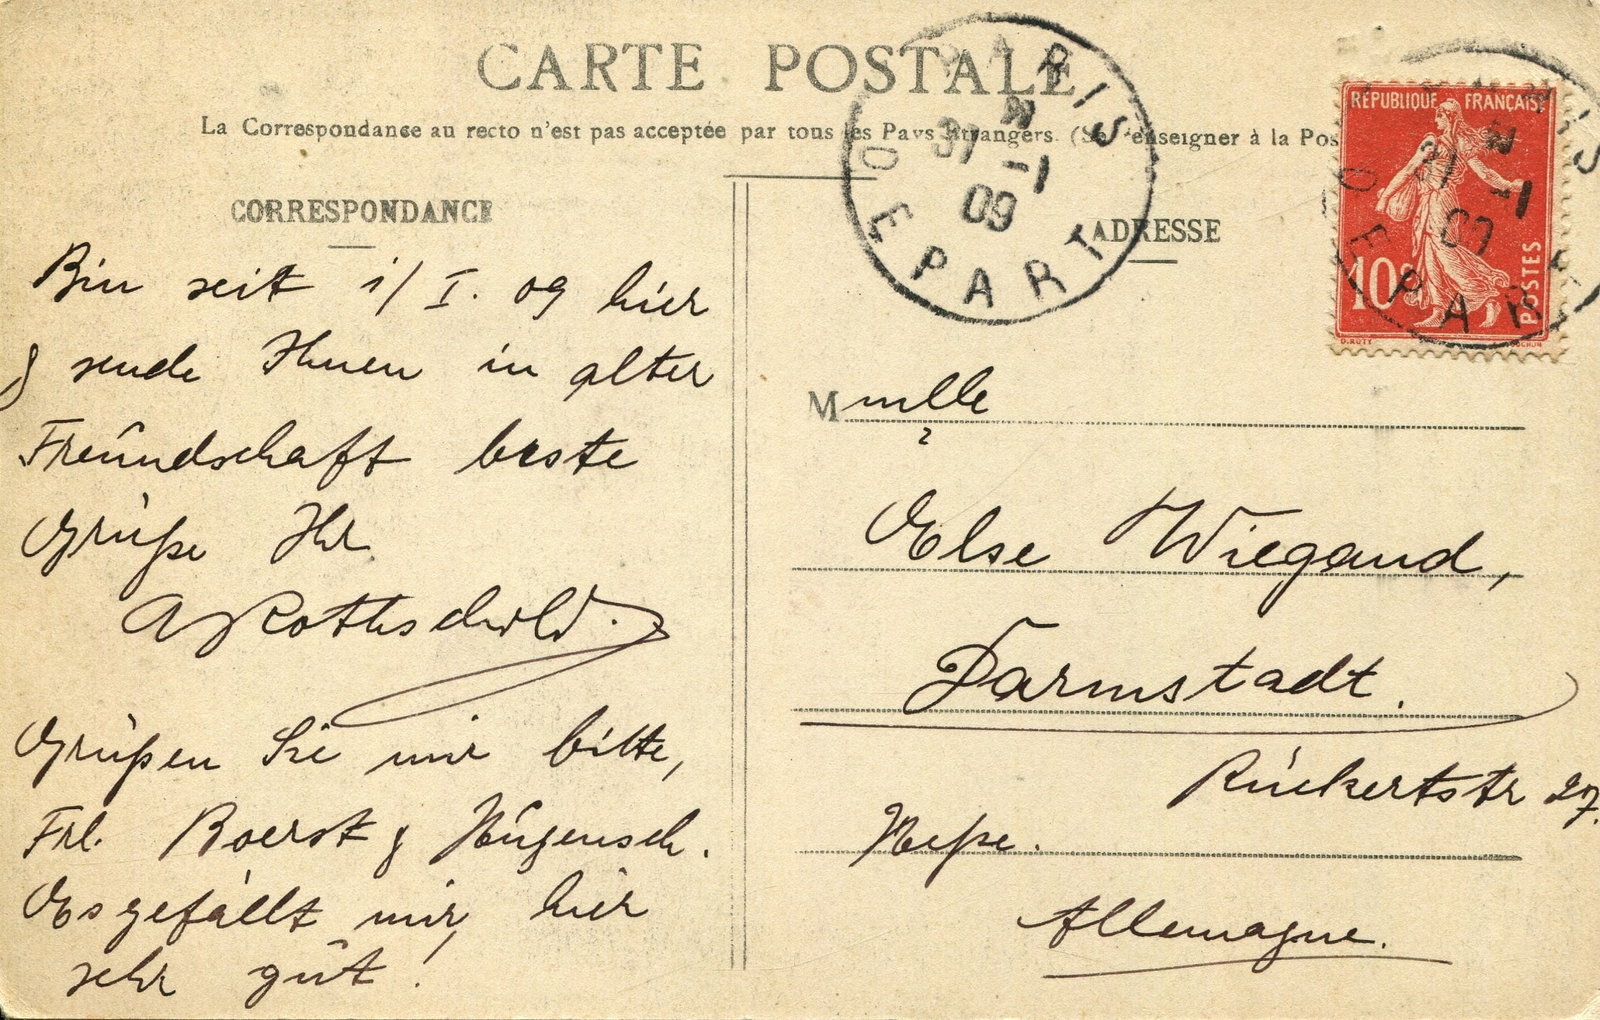 CARTE POSTALE
La Correspondance au recto n'est pas acceptée par tous les Pays Etrangers. (Se renseigner à la Pos
CORRESPONDANCE
ADRESSE
PARIS
31 -1
09
DEPART
RÉPUBLIQUE FRANÇAISE
10c
POSTES
O.ROTY
PARIS
31 -1
DEPART
Bin seit 1/I. 09 hier
& sende Ihnen in alter
Freundschaft beste
Grüße Ihr
A Rothschild.
Grüßen Sie mir bitte,
Frl. Boerst & Hügensch.
Es gefällt mir hier
sehr gut!
M mlle
Else Wiegand,
Darmstadt.
Rückertstr 27.
Heße.
Allemagne.